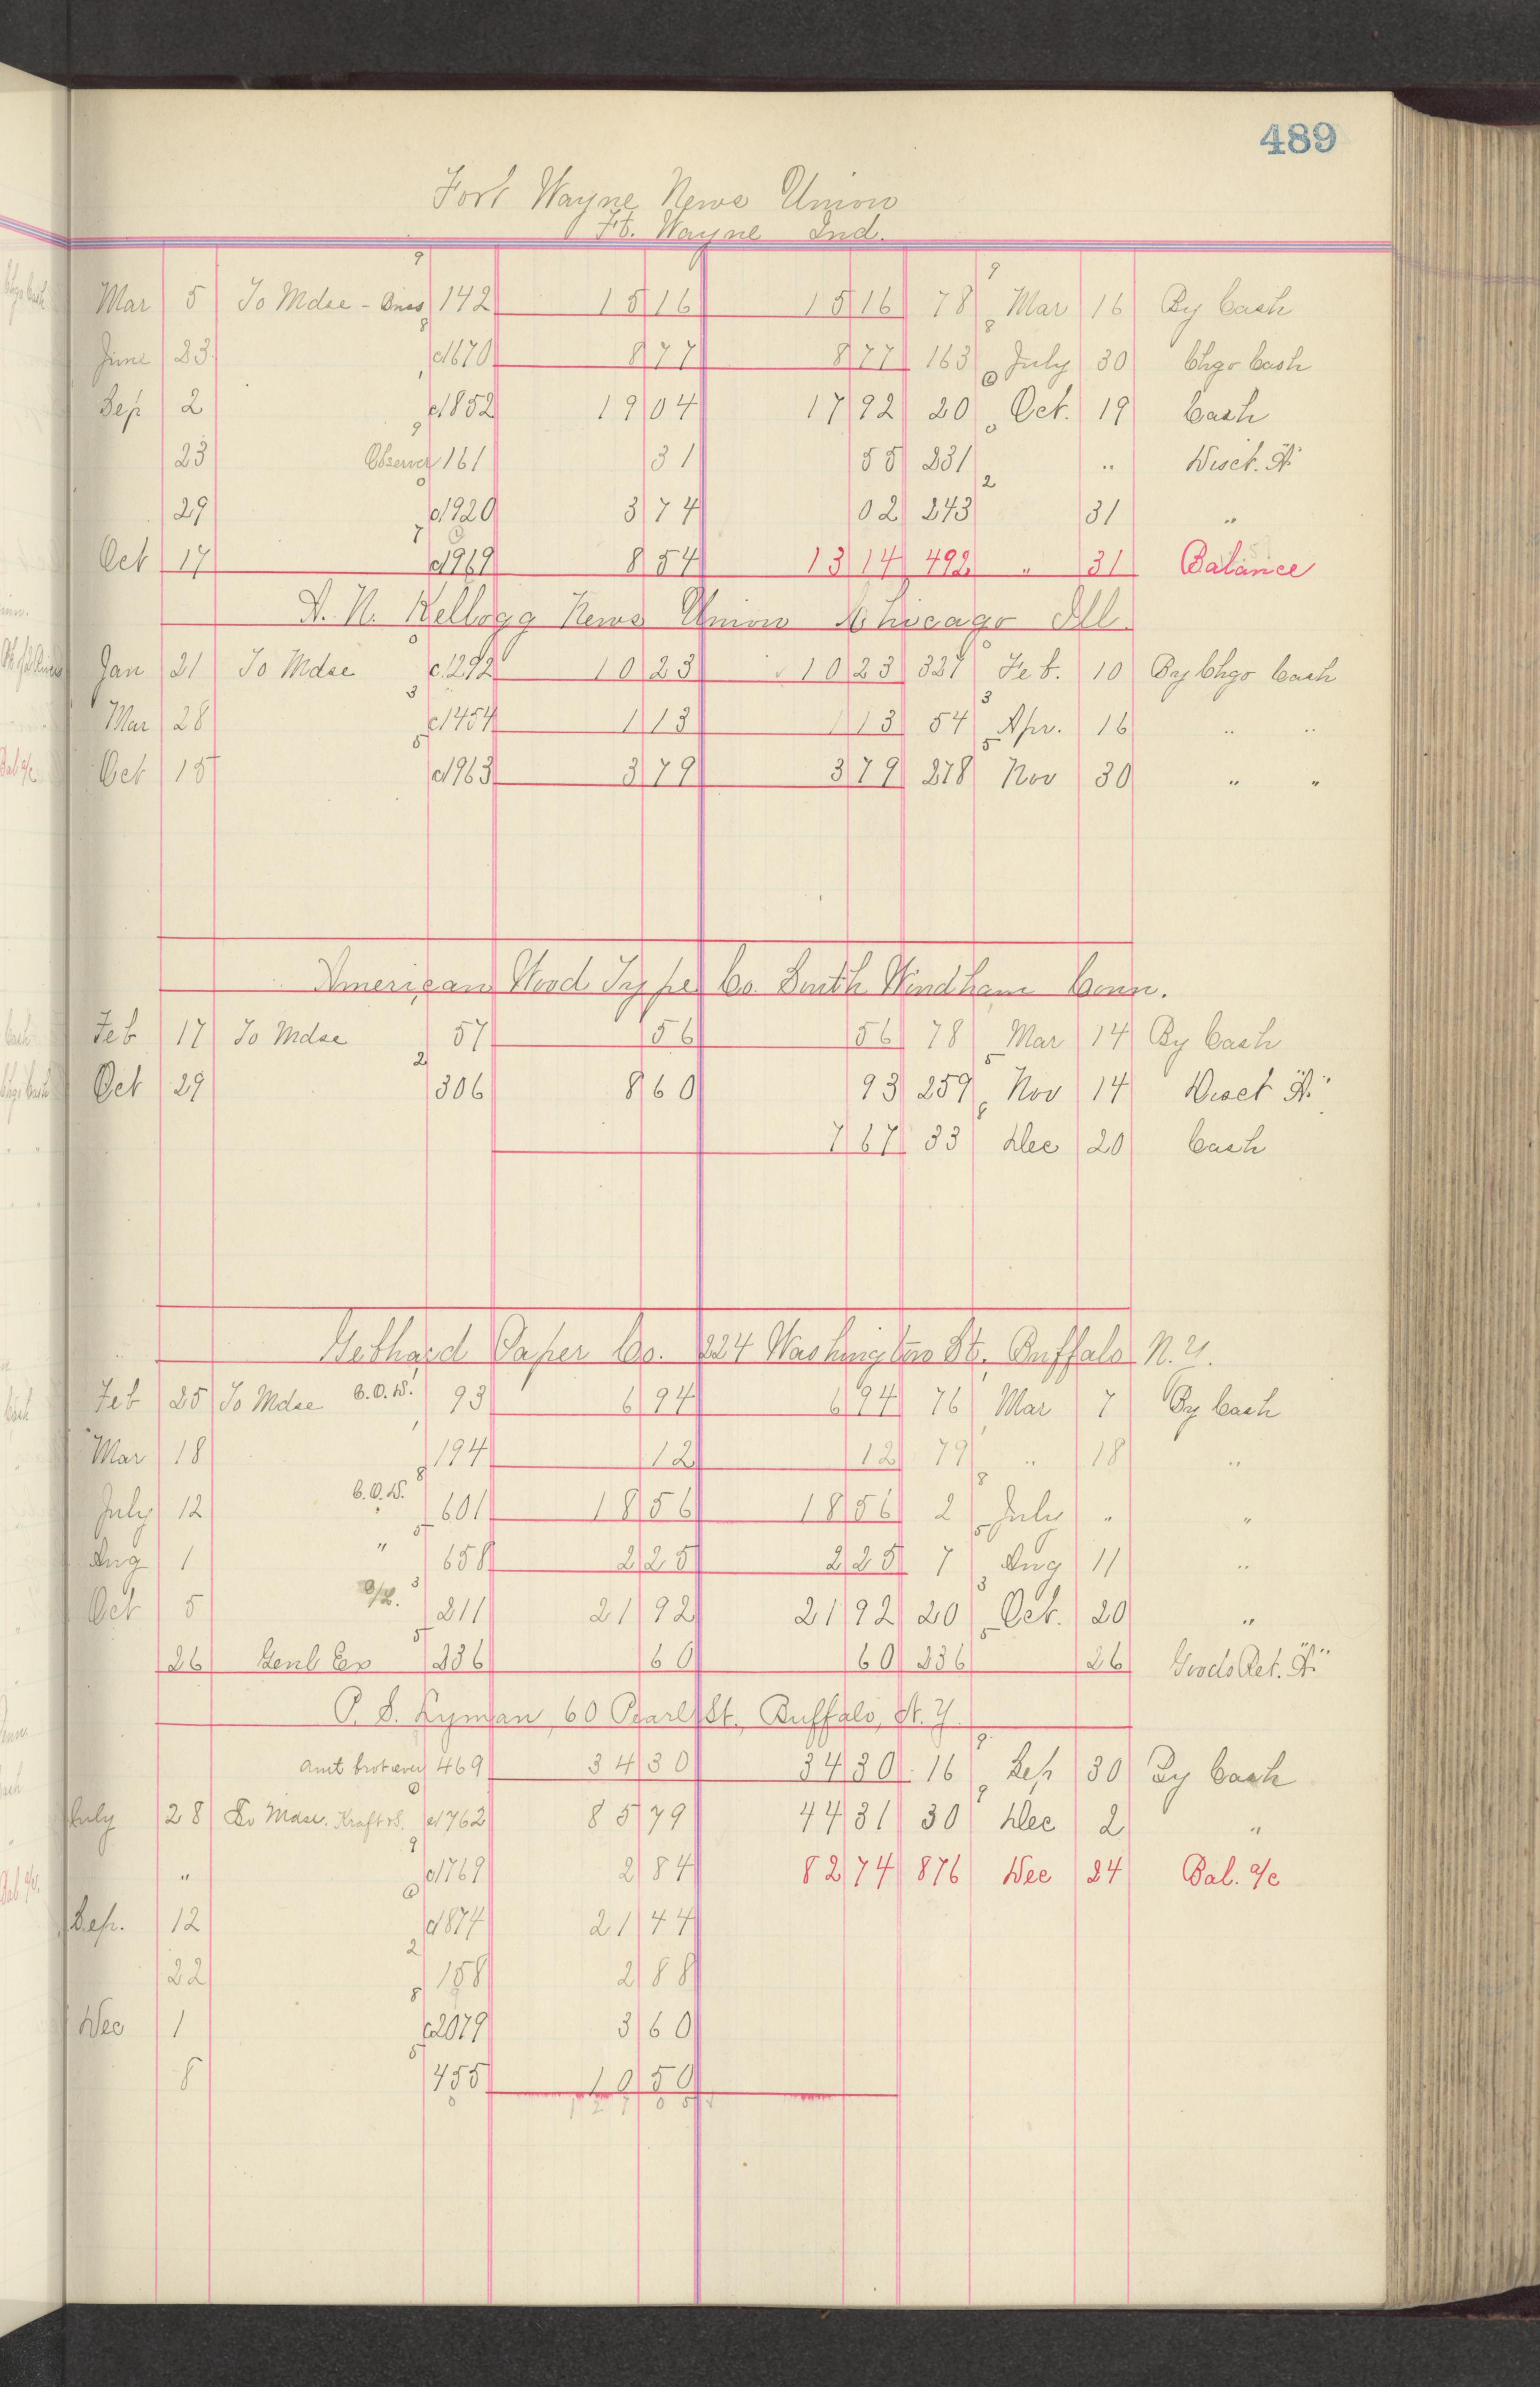 489
Fort Wayne News Union
Ft. Wayne Ind.
9 9
Mar 5 To Mdse - 142 15 16 15 16 78 Mar 16 By Cash
8 8
June 23 c1670 8 77 8 77 163 July 30 Chgo Cash
Sep 2 c1852 19 04 17 92 20 Oct. 19 Cash
23 Observer 161 31 55 231 " Disct. "A"
29 c1920 3 74 02 243 31 "
Oct 17 c1969 8 54 13 14 492 " 31 Balance
A. N. Kellogg News Union Chicago Ill.
Jan 21 To Mdse c1292 10 23 10 23 327 Feb. 10 By Chgo Cash
Mar 28 c1454 1 13 1 13 54 Apr. 16 " "
Oct 15 c1963 3 79 3 79 278 Nov 30 " "
American Wood Type Co. South Windham Conn.
Feb 17 To Mdse 57 56 56 78 Mar 14 By Cash
Oct 29 306 8 60 93 259 Nov 14 Disct "A"
7 67 33 Dec 20 Cash
Gebhard Paper Co. 224 Washington St. Buffalo N.Y.
Feb 25 To Mdse C.O.D. 93 6 94 6 94 76 Mar 7 By Cash
Mar 18 194 12 12 79 " 18 "
July 12 C.O.D. 601 18 56 18 56 2 July " "
Aug 1 " 658 2 25 2 25 7 Aug 11 "
Oct 5 211 21 92 21 92 20 Oct. 20 "
26 Genl Ex 236 60 60 236 26 Goods Ret. "A"
P. S. Lyman, 60 Pearl St., Buffalo, N.Y.
Amt brot over 469 34 30 34 30 16 Sep 30 By Cash
July 28 To Mdse. Kraft c1762 85 79 44 31 30 Dec 2 "
" c1769 2 84 82 74 876 Dec 24 Bal. a/c
Sep. 12 c1874 21 44
22 158 2 88
Dec 1 c2079 3 60
8 455 10 50